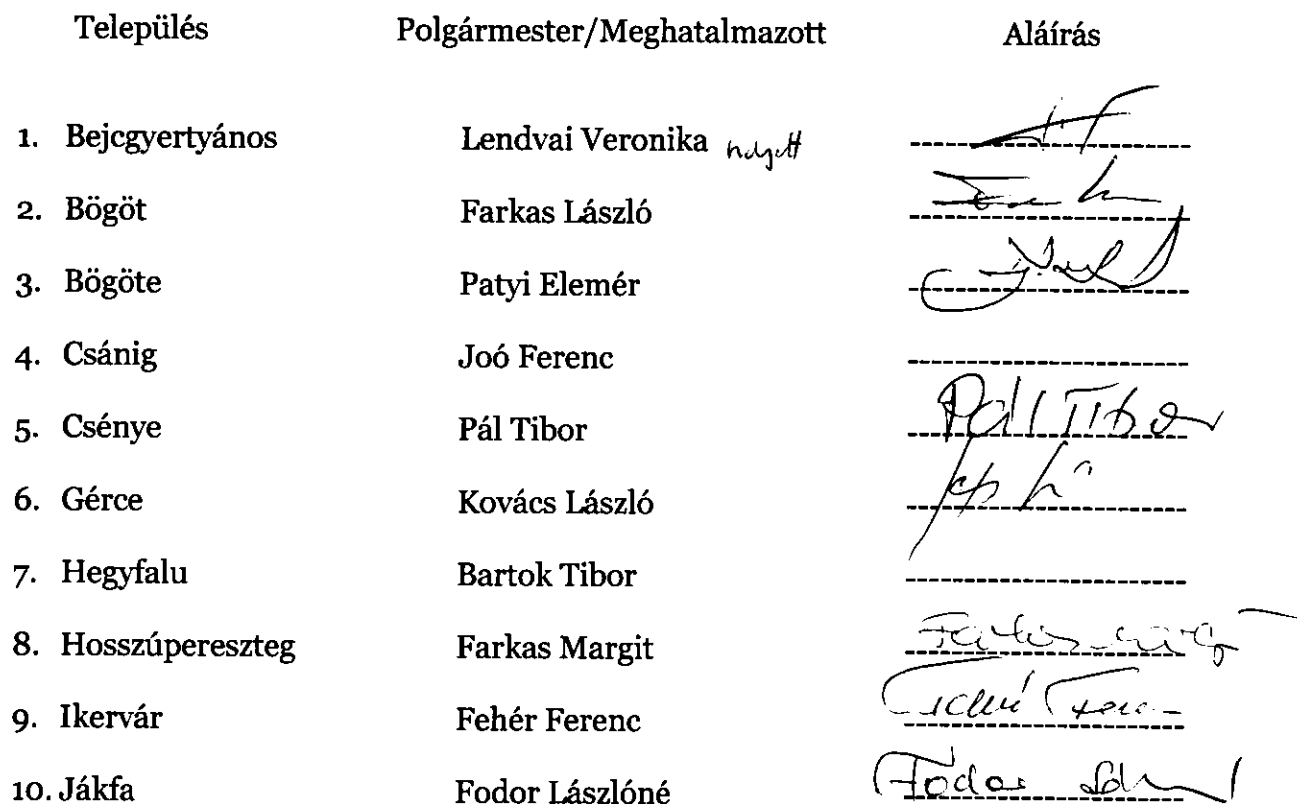 Település Polgármester/Meghatalmazott Aláírás
1. Bejcgyertyános Lendvai Veronika helyett
2. Bögöt Farkas László
3. Bögöte Patyi Elemér
4. Csánig Joó Ferenc
5. Csénye Pál Tibor Pál Tibor
6. Gérce Kovács László
7. Hegyfalu Bartok Tibor
8. Hosszúpereszteg Farkas Margit Farkas Margit
9. Ikervár Fehér Ferenc Fehér Ferenc
10. Jákfa Fodor Lászlóné Fodor